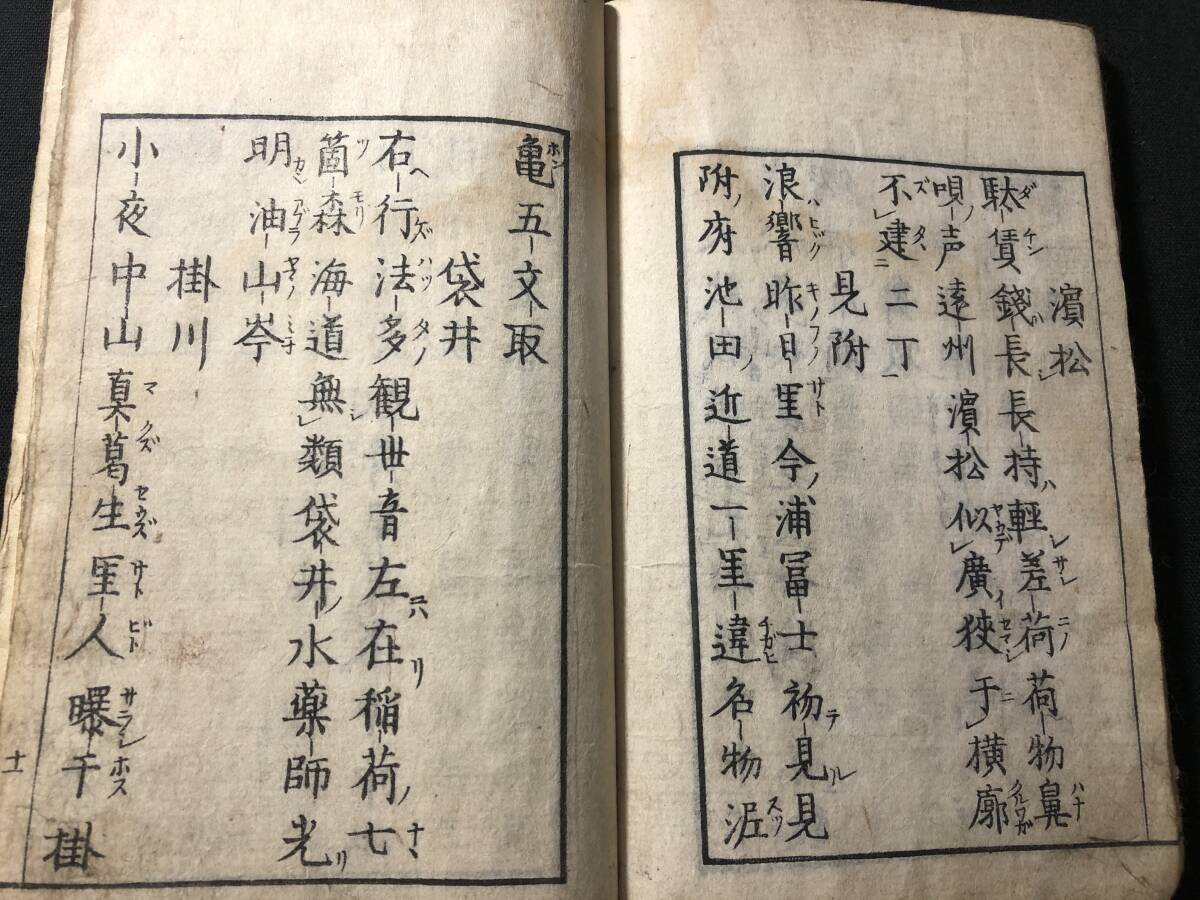 濱松
駄賃錢長長持輕差荷荷物鼻
唄声遠州濱松似廣狹于横廓
不建二丁
見附
浪響昨日里今浦冨士初見見
附府池田近道一里違名物泥
亀五文取
袋井
右行法多観世音左在稲荷七
箇森海道無類袋井水藥師光
明油山岑
掛川
小夜中山真葛生里人曝干掛
十一